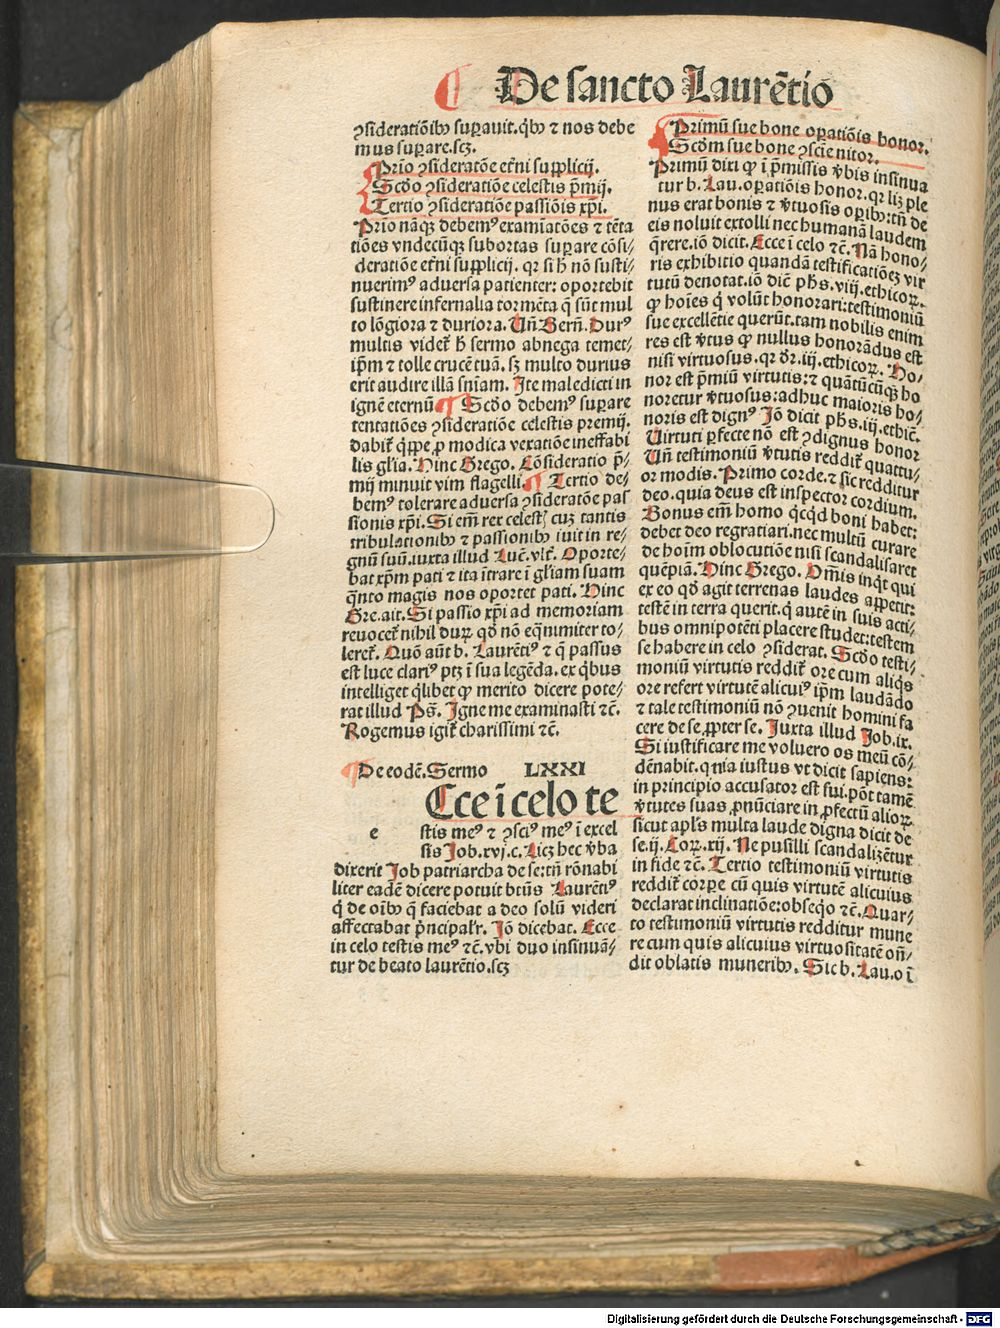 De sancto Laurētio
ꝯsideratiōibꝫ suꝑauit. q̇bꝫ ⁊ nos debe
mus suꝑare. scꝫ.
Prīo ꝯsideratōe et̄ni supplicij.
Scd̄o ꝯsideratiōe celestis p̄mij.
Tertio ꝯsideratiōe passiōis xp̄i.
Prīo nāqꝫ debemꝰ examīatōes ⁊ tētā
tiōes vndecūqꝫ subortas suꝑare cōsi/
deratiōe et̄ni supplicij. qꝛ si h̄ nō susti/
nuerimꝰ aduersa patienter: oportebit
sustinere infernalia tormēta q̄ sūt mul
to lōgiora ⁊ duriora. Vn̄ Bern̄. Durꝰ
multis videt̄ h̄ sermo abnega temet/
ip̄m ⁊ tolle crucē tuā. sꝫ multo durius
erit audire illā sn̄iam. Ite maledicti in
ignē eternū ¶ Scd̄o debemꝰ suꝑare
tentatiōes ꝯsideratiōe celestis premij.
dabit̄ q̇ppe ꝓ modica vexatiōe ineffabi
lis gl̄ia. Hinc Grego. Cōsideratio p̄/
mij minuit vim flagelli. ¶ Tertio de/
bemꝰ tolerare aduersa ꝯsideratōe pas
sionis xp̄i. Si em̄ rex celestꝭ cuꝫ tantis
tribulationibꝫ ⁊ passionibꝫ iuit in re/
gnū suū. iuxta illud Luc̄. vlt̄. Oporte/
bat xp̄m pati ⁊ ita ītrare ī gl̄iam suam
q̄nto magis nos oportet pati. Hinc
Gre. ait. Si passio xp̄i ad memoriam
reuocet̄ nihil duꝝ qd̄ nō eq̄nimiter to/
leret̄. Quō aūt b. Laurētiꝰ ⁊ q̄ passus
est luce clariꝰ ptꝫ ī sua legēda. ex q̇bus
intelliget q̇libet ꝙ merito dicere pote/
rat illud Ps̄. Igne me examinasti ⁊c̄.
Rogemus igit̄ charissimi ⁊c̄.
¶ De eodē. Sermo LXXI
Ecce ī celo te
e stis meꝰ ⁊ ꝯsciꝰ meꝰ ī excel
sis Job. xvj. c. Licꝫ hec v̄ba
dixerit Job patriarcha de se: tn̄ rōnabi
liter eadē dicere potuit btūs Laurētiꝰ
q̇ de oībꝫ q̄ faciebat a deo solū videri
affectabat p̄ncipal̄r. Jō dicebat. Ecce
in celo testis meꝰ ⁊c̄. vbi duo insinuā/
tur de beato laurētio. scꝫ
Primū sue bone oꝑatiōis honor.
Scd̄m sue bone ꝯsciē nitor.
Primū dixi ꝙ ī p̄missis v̄bis insinua
tur b. Lau. oꝑatiōis honor. qꝛ lꝫ ple
nus erat bonis ⁊ v̄tuosis oꝑibꝫ: tn̄ de
eis noluit extolli nec humanā laudem
q̄rere. iō dicit. Ecce ī celo ⁊c̄. Nā hono/
ris exhibitio quandā testificatiōeꝫ vir
tutū denotat. iō dic̄ ph̄s. viij. ethicoꝝ.
ꝙ hoīes q̇ volūt honorari: testimoniū
sue excellētie querūt. tam nobilis enim
res est v̄tus ꝙ nullus honorādus est
nisi virtuosus. qꝛ dr̄. iij. ethicoꝝ. Ho/
nor est p̄miū virtutis: ⁊ quātūcūqꝫ ho
noretur v̄tuosus: adhuc maioris ho/
noris est dignꝰ Jō dicit ph̄s. iij. ethic̄.
Virtuti ꝑfecte nō est ꝯdignus honor
Vn̄ testimoniū v̄tutis reddit̄ quattu/
or modis. Primo corde. ⁊ sic redditur
deo. quia deus est inspector cordium.
Bonus em̄ homo q̇cqd̄ boni habet:
debet deo regratiari. nec multū curare
de hoīm oblocutiōe nisi scandalisaret
quēpiā. Hinc Grego. Om̄is inq̇t qui
ex eo qd̄ agit terrenas laudes appetit:
testē in terra querit. q̇ autē in suis acti/
bus omnipotēti placere studet: testem
se habere in celo ꝯsiderat. Scd̄o testi/
moniū virtutis reddit̄ ore cum aliq̇s
ore refert virtutē alicuiꝰ ip̄m laudādo
⁊ tale testimoniū nō ꝯuenit homini fa
cere de se ꝓpter se. Juxta illud Job. ix.
Si iustificare me voluero os meū cō/
dēnabit. qnia iustus vt dicit sapiens:
in principio accusator est sui. pōt tamē
v̄tutes suas ꝓnūciare in ꝓfectū alioꝝ
sicut apl̄s multa laude digna dicit de
se. ij. Coꝝ. xij. Ne pusilli scandalizētur
in fide ⁊c̄. Tertio testimoniū virtutis
reddit̄ corpe cū quis virtutē alicuius
declarat inclinatiōe: obseq̇o ⁊c̄. Quar/
to testimoniū virtutis redditur mune
re cum quis alicuius virtuositatē on̄/
dit oblatis muneribꝫ. Sic b. Lau. o ī
Digitalisierung gefördert durch die Deutsche Forschungsgemeinschaft - DFG